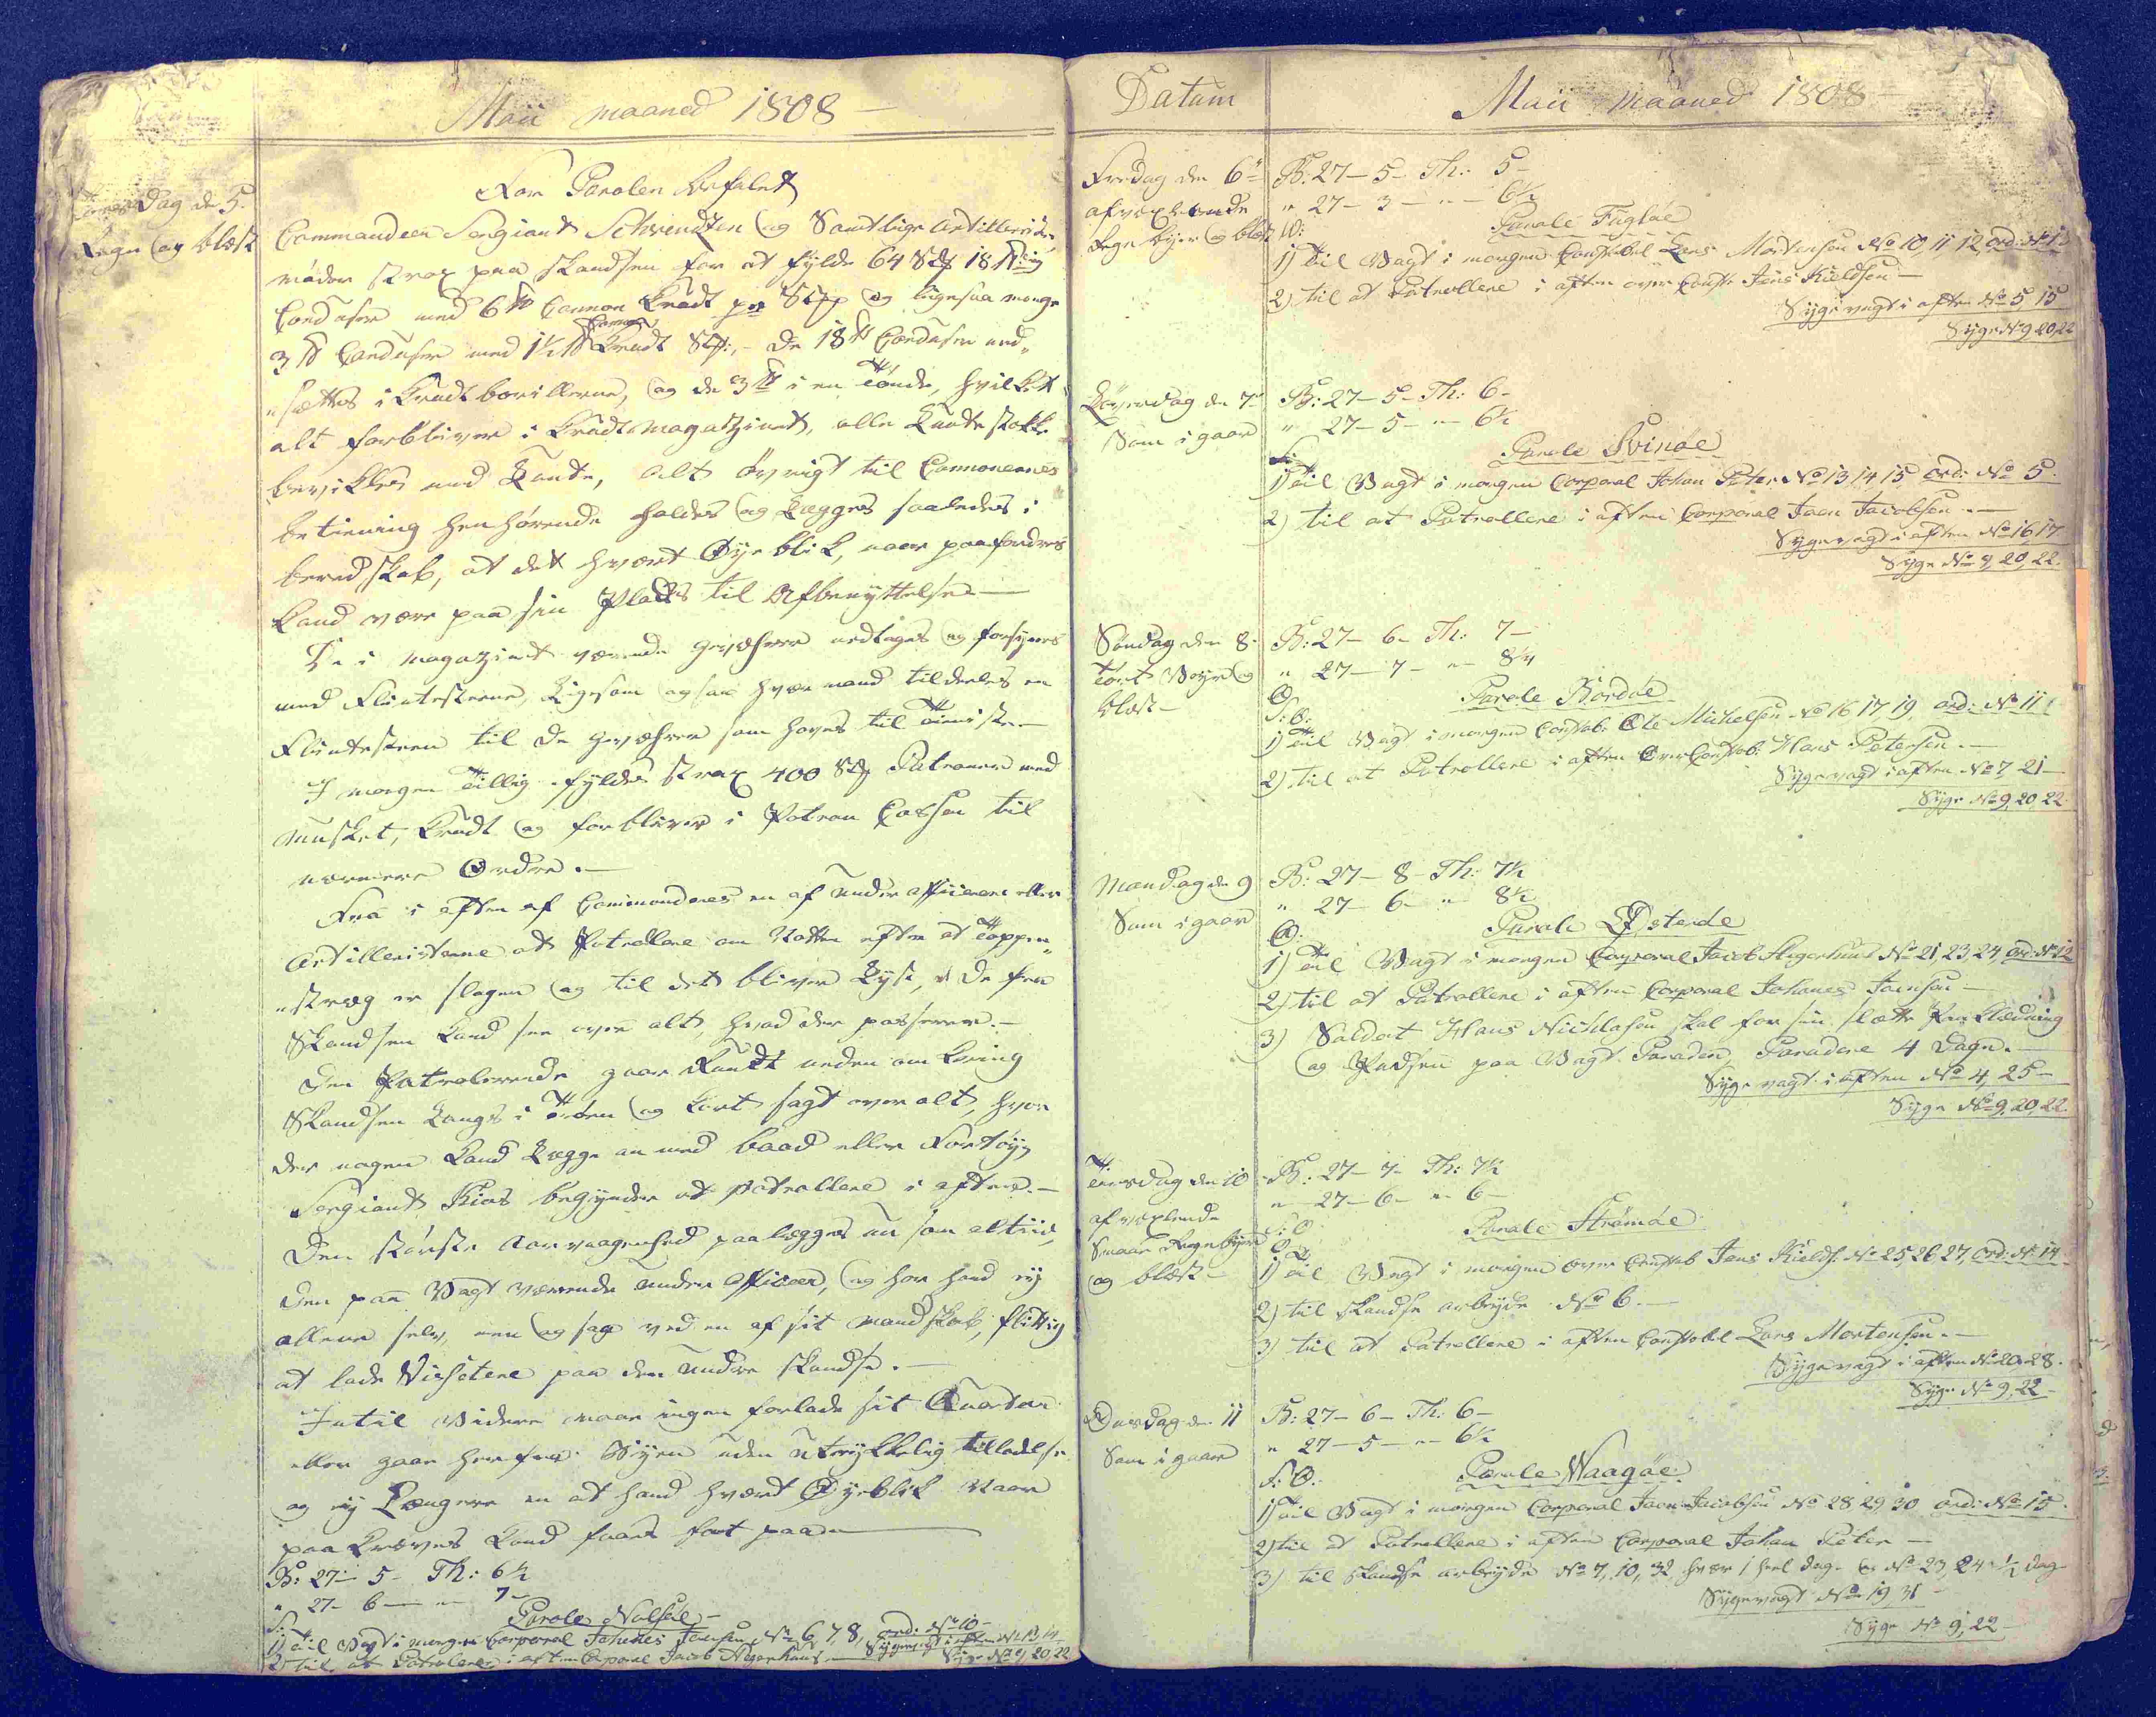 Maii maaned 1808 —
Torsdag d. 5.
Regn og blæst
Før Parolen befalet
Commandeer Sergiant Schrendten og Samtlige Artillerister
møder strax paa Skandsen for at fylde 64 Stk 18 ℔dig
Carduser med 6 ℔ Canon Krudt pr Stk og ligesaa mange
3 ℔ Carduser med 1½ ℔ Canon Krudt Stk:, – De 18 ℔ Carduser ned„
„sættes i Krudtbovillerne, og de 3 ℔ i en Tønde, hvilket
alt forbliver i Krudtmagatzinet, alle Luntestokke
bevikles med Lunte, alt øvrigt til Canonernes
betiening henhørende holdes og lægges saaledes i
beredskab, at det hvært Øyeblik, naar paafordres
kand være paa sin Plads til Afbenyttelse —
De i magazinet værende gevæhrer nedtages og forsynes
med Flintestene, Ligesom ogsaa hvær mand tildeeles en
Flintesteen til de gevæhrer som haves til
I morgen tillig fyldes strax 400 Stk Patroner med
Musket, Krudt og forbliver i Patron Cassen til
nærmere Ordre. —
Fra i aften af Commanderes en af under officererne eller
Artilleristerne at Patrollere om Natten efter at Tappen„
„stræg er slagen og til det bliver Lyst, De fra
Skandsen kand see over alt, hvad der passerer. —
Den Patrolerende gaar Rundt neden om kring
Skandsen Langs i øren og kort sagt over alt, hvor
der nogen kand Lægge an med baad eller Fartøy,
Sergiant Kias begynder at patrollere i aften. —
Den største Aarvaagenhed paalægges nu som altiid,
den paa Vagt værende under Officeer, og har hand ey
allene selv, men ogsaa ved en af sit mandskab, flittig
at lade Visitere paa den Undre Skandse. —
Intil Videre maae ingen forlade sit Qvarteer
eller gaae her fra Byen uden Utrykkelig tilladelse
og ey Længere en at hand hvært Øyeblik Naar
paa kræves kand faaes fat paa —
B: 27 – 5 – Th: 6½
„ 27 – 6 — „ — 7 –
Parole Nolsøe –
S:
1) til Vagt i morgen Corporal Johanes Joensen No 6, 7, 8, ord: No 10 –
Sygevagt i aften No 13, 14
2) til at Patrolere i aften Corporal Jacob Argerhuus —
Syge No 9, 20, 22
Datum
Maii maaned 1808 –
Fredag den 6te
afvexlende
Regn byer og blæst
B: 27 – 5 – Th: 5 –
„ 27 – 3 — „ — 6½
Parole Fugløe
1) til Vagt i morgen Constabel Lars Mortensen No 10, 11, 12, ord: No 1
2) til at Patrollere i aften over Const: Jens Kieldsen —
Sygevagt i aften No 5 15
Syge No 9 20, 22
Løverdag den 7de
Som i gaar
B: 27 – 5 – Th: 6 –
„ 27 – 5 — „ — 6½
Parole Svinøe
1) til Vagt i morgen Corporal Johan Peter No 13 14 15, ord: No 5.
2) til at Patrollere i aften Corporal Joen Jacobsen. —
Sygevagt i aften No 16, 17
Syge No 9, 20, 22.
Søndag den 8.
tørt Veyr og
blæst —
B: 27 – 6 – Th: 7 –
„ 27 – 7 — „ — 8¼
Parole Bordøe
S: O:
1) til Vagt i morgen Constab: Ole Michelsen No 16 17 19, ord: No 11
2) til at Patrollere i aften Over Constab: Hans Petersen. —
Sygevagt i aften No 7, 21 —
Syge No 9, 20, 22
Mandag den 9
Som i gaar
B: 27 – 8 – Th: 7½
„ 27 – 6 – „ 8½
Parole Østerde
O:
1) til Vagt i morgen Corporal Jacob Argerhuus No 21, 23, 24, ord: No 12
2) til at Patrollere i aften Corporal Johanes Joensen —
3) Soldat Hans Nichlasen skal for sin slætte Paaklædning
og Pudsen paa Vagt Paraden, Paradere 4 dage. —
Sygevagt i aften No 4, 25 —
Syge No 9, 20, 22.
Tiersdag den 10
afvexlende
Smaae Regnbyer
og blæst —
B: 27 – 7 – Th: 7½
„ 27 – 6 – „ 6 —
Parole Strømøe
S: O:
1) til Vagt i morgen over Constab Jens Kields: No 25, 26, 27, ord: No 14
2) til skandse arbeyde No 6. —
3) til at Patrollere i aften Constabel Lars Mortensen. —
Sygevagt i aften No 20 28.
Syge No 9, 22 –
Onsdag den 11
Som i gaar
B: 27 – 6 – Th: 6 –
„ 27 – 5 — „ — 6½
Parole Waagøe
S: O:
1) til Vagt i morgen Corporal Joen Jacobsen No 28 29, 30 ord: No 15.
2) til at Patrollere i aften Corporal Johan Peter —
3) til Skandse arbeyde No 7, 10, 32 hvær 1 heel dag. og No 23, 24 ½ dag
Sygevagt No 19, 31
Syge No 9, 22 —